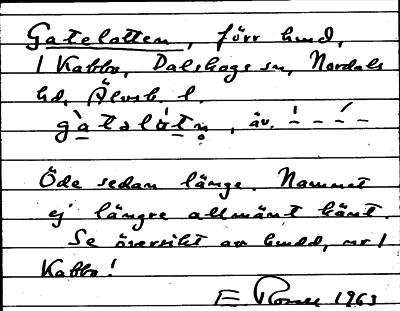 Gatelotten, förr hmd,
1 Kabbo, Dalskogs sn, Nordals
hd, Älvsb. l.
gàtəlòtn̥, äv.
Öde sedan länge. Namnet
ej längre allmänt känt.
Se översikt av hmdd, nr 1
Kabbo!
E 1963